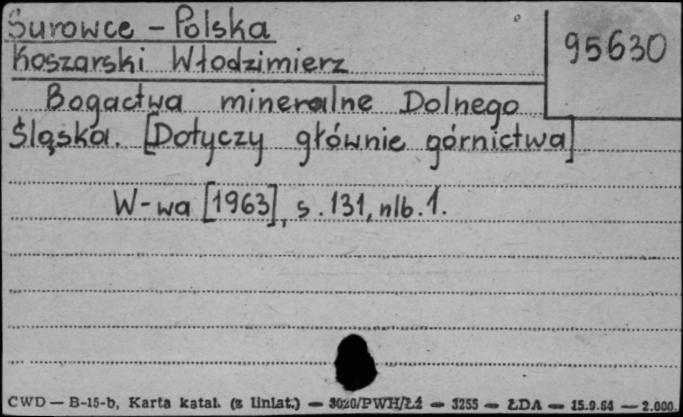 Surowce - Polska
95630
Koszarski Włodzimierz
Bogactwa mineralne Dolnego
Śląska. [Dotyczy głównie górnictwa]
W-wa [1963], s. 131, nlb. 1.
CWD — B-15-b, Karta katal. (z liniat.) — 3020/PWH/Łź — 3255 — ŁDA — 15.9.54 — 2.000.